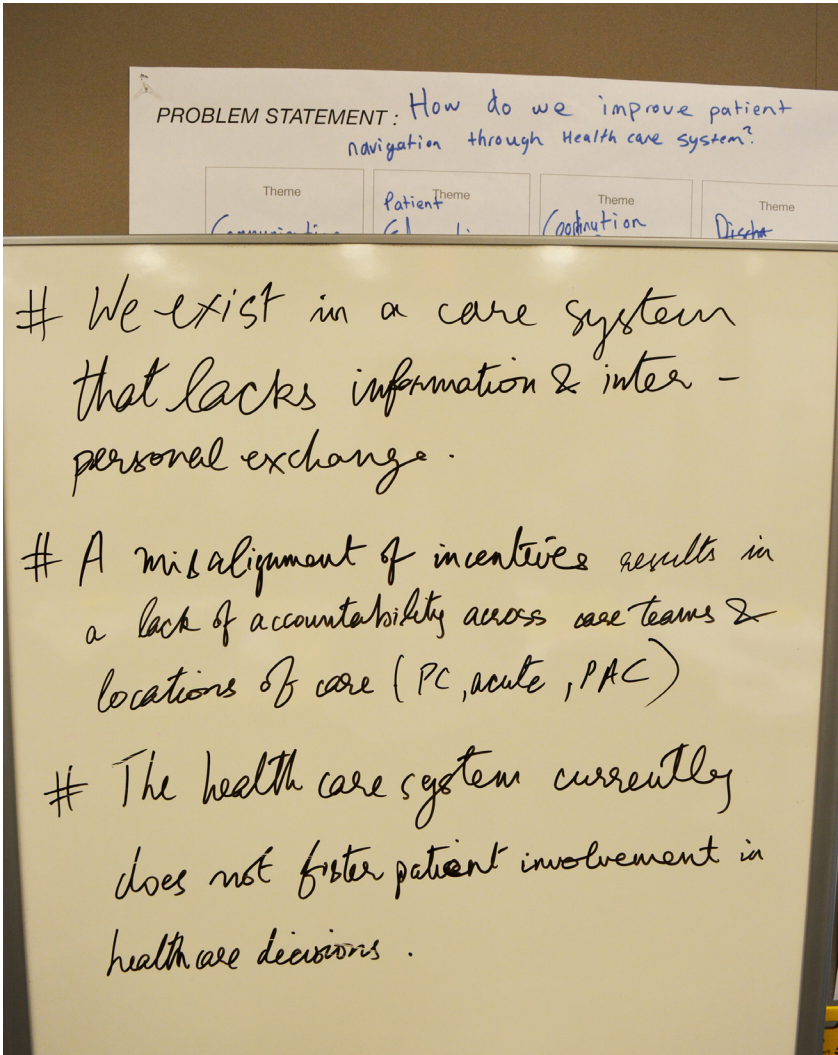 PROBLEM STATEMENT : How do we improve patient
navigation through Health care system?
Theme Theme Theme Theme
Patient
Coordination
# We exist in a care system
that lacks information & inter -
personal exchange.
# A misalignment of incentives results in
a lack of accountability across care teams &
locations of care (PC, acute, PAC)
# The health care system currently
does not foster patient involvement in
healthcare decisions.